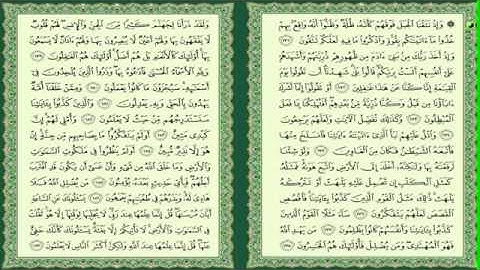 ۞ وَإِذْ نَتَقْنَا الْجَبَلَ فَوْقَهُمْ كَأَنَّهُ ظُلَّةٌ وَظَنُّوا أَنَّهُ وَاقِعٌ بِهِمْ
خُذُوا مَا ءَاتَيْنَاكُم بِقُوَّةٍ وَاذْكُرُوا مَا فِيهِ لَعَلَّكُمْ تَتَّقُونَ ﴿١٧١﴾
وَإِذْ أَخَذَ رَبُّكَ مِن بَنِي ءَادَمَ مِن ظُهُورِهِمْ ذُرِّيَّتَهُمْ وَأَشْهَدَهُمْ
عَلَى أَنفُسِهِمْ أَلَسْتُ بِرَبِّكُمْ قَالُوا بَلَى شَهِدْنَا أَن تَقُولُوا يَوْمَ
الْقِيَامَةِ إِنَّا كُنَّا عَنْ هَذَا غَافِلِينَ ﴿١٧٢﴾ أَوْ تَقُولُوا إِنَّمَا أَشْرَكَ
ءَابَاؤُنَا مِن قَبْلُ وَكُنَّا ذُرِّيَّةً مِّن بَعْدِهِمْ أَفَتُهْلِكُنَا بِمَا فَعَلَ
الْمُبْطِلُونَ ﴿١٧٣﴾ وَكَذَلِكَ نُفَصِّلُ الْآيَاتِ وَلَعَلَّهُمْ يَرْجِعُونَ
﴿١٧٤﴾ وَاتْلُ عَلَيْهِمْ نَبَأَ الَّذِي ءَاتَيْنَاهُ ءَايَاتِنَا فَانسَلَخَ مِنْهَا
فَأَتْبَعَهُ الشَّيْطَانُ فَكَانَ مِنَ الْغَاوِينَ ﴿١٧٥﴾ وَلَوْ شِئْنَا
لَرَفَعْنَاهُ بِهَا وَلَكِنَّهُ أَخْلَدَ إِلَى الْأَرْضِ وَاتَّبَعَ هَوَاهُ فَمَثَلُهُ
كَمَثَلِ الْكَلْبِ إِن تَحْمِلْ عَلَيْهِ يَلْهَثْ أَوْ تَتْرُكْهُ
يَلْهَث ذَّلِكَ مَثَلُ الْقَوْمِ الَّذِينَ كَذَّبُوا بِآيَاتِنَا فَاقْصُصِ
الْقَصَصَ لَعَلَّهُمْ يَتَفَكَّرُونَ ﴿١٧٦﴾ سَاءَ مَثَلًا الْقَوْمُ الَّذِينَ
كَذَّبُوا بِآيَاتِنَا وَأَنفُسَهُمْ كَانُوا يَظْلِمُونَ ﴿١٧٧﴾ مَن يَهْدِ اللَّهُ
فَهُوَ الْمُهْتَدِي وَمَن يُضْلِلْ فَأُولَئِكَ هُمُ الْخَاسِرُونَ ﴿١٧٨﴾
وَلَقَدْ ذَرَأْنَا لِجَهَنَّمَ كَثِيرًا مِّنَ الْجِنِّ وَالْإِنسِ لَهُمْ قُلُوبٌ
لَّا يَفْقَهُونَ بِهَا وَلَهُمْ أَعْيُنٌ لَّا يُبْصِرُونَ بِهَا وَلَهُمْ ءَاذَانٌ لَّا يَسْمَعُونَ
بِهَا أُولَئِكَ كَالْأَنْعَامِ بَلْ هُمْ أَضَلُّ أُولَئِكَ هُمُ الْغَافِلُونَ ﴿١٧٩﴾
وَلِلَّهِ الْأَسْمَاءُ الْحُسْنَى فَادْعُوهُ بِهَا وَذَرُوا الَّذِينَ يُلْحِدُونَ فِي
أَسْمَائِهِ سَيُجْزَوْنَ مَا كَانُوا يَعْمَلُونَ ﴿١٨٠﴾ وَمِمَّنْ خَلَقْنَا أُمَّةٌ
يَهْدُونَ بِالْحَقِّ وَبِهِ يَعْدِلُونَ ﴿١٨١﴾ وَالَّذِينَ كَذَّبُوا بِآيَاتِنَا
سَنَسْتَدْرِجُهُم مِّنْ حَيْثُ لَا يَعْلَمُونَ ﴿١٨٢﴾ وَأُمْلِي لَهُمْ إِنَّ
كَيْدِي مَتِينٌ ﴿١٨٣﴾ أَوَلَمْ يَتَفَكَّرُوا مَا بِصَاحِبِهِم مِّن جِنَّةٍ إِنْ
هُوَ إِلَّا نَذِيرٌ مُّبِينٌ ﴿١٨٤﴾ أَوَلَمْ يَنظُرُوا فِي مَلَكُوتِ السَّمَاوَاتِ
وَالْأَرْضِ وَمَا خَلَقَ اللَّهُ مِن شَيْءٍ وَأَنْ عَسَى أَن يَكُونَ قَدِ اقْتَرَبَ
أَجَلُهُمْ فَبِأَيِّ حَدِيثٍ بَعْدَهُ يُؤْمِنُونَ ﴿١٨٥﴾ مَن يُضْلِلِ اللَّهُ فَلَا
هَادِيَ لَهُ وَيَذَرُهُمْ فِي طُغْيَانِهِمْ يَعْمَهُونَ ﴿١٨٦﴾ يَسْأَلُونَكَ عَنِ السَّاعَةِ
أَيَّانَ مُرْسَاهَا قُلْ إِنَّمَا عِلْمُهَا عِندَ رَبِّي لَا يُجَلِّيهَا لِوَقْتِهَا إِلَّا هُوَ ثَقُلَتْ
فِي السَّمَاوَاتِ وَالْأَرْضِ لَا تَأْتِيكُمْ إِلَّا بَغْتَةً يَسْأَلُونَكَ كَأَنَّكَ حَفِيٌّ
عَنْهَا قُلْ إِنَّمَا عِلْمُهَا عِندَ اللَّهِ وَلَكِنَّ أَكْثَرَ النَّاسِ لَا يَعْلَمُونَ ﴿١٨٧﴾